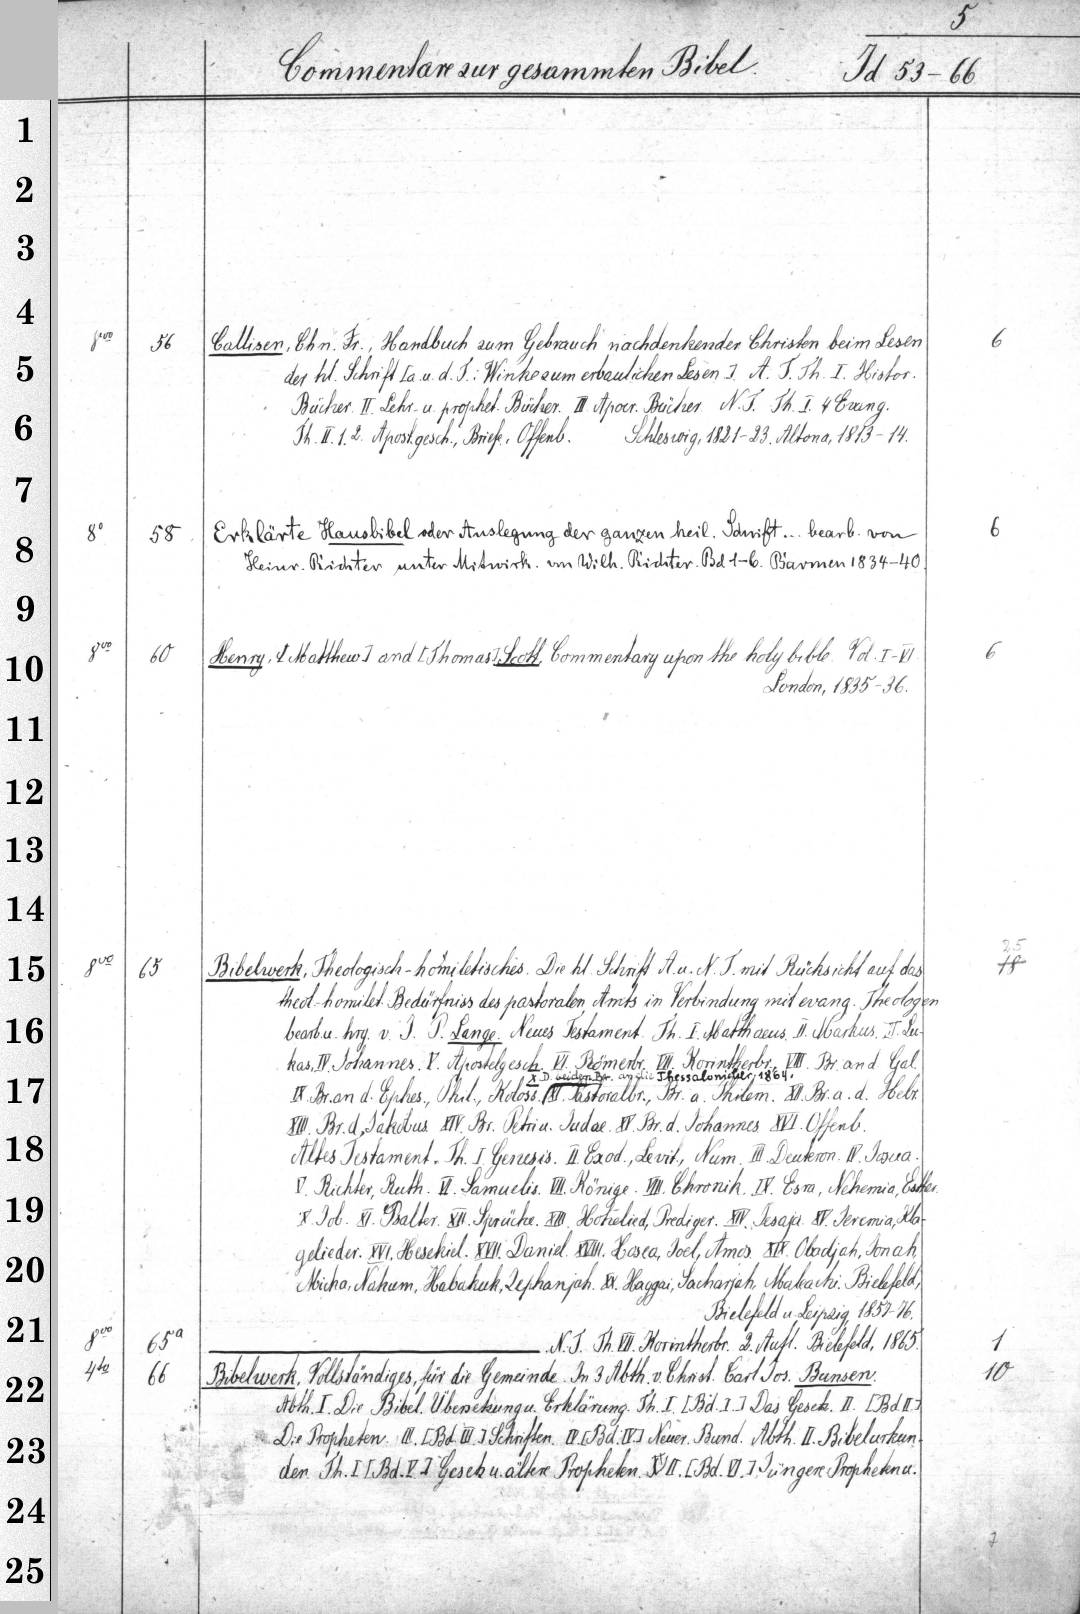 5
Commentare zur gesammten Bibel. Id 53-66
1
2
3
4
8vo 56 Callisen, Chn. Fr., Handbuch zum Gebrauch nachdenkender Christen beim Lesen 6
5
der hl. Schrift [a. u. d. T.: Winke zum erbaulichen Lesen]. A. T. Th. I. Histor.
Bücher. II. Lehr- u. prophet. Bücher. III Apocr. Bücher N. T. Th. I. 4 Evang.
6
Th. II. 1. 2. Apost.gesch., Briefe, Offenb. Schleswig, 1821-23. Altona, 1813-14.
7
8° 58 Erklärte Hausbibel oder Auslegung der ganzen heil. Schrift... bearb. von 6
8
Heinr. Richter unter Mitwirk. von Wilh. Richter. Bd 1-6. Barmen 1834-40.
9
8vo 60 Henry, [Matthew] and [Thomas] Scott, Commentary upon the holy bible. Vol. I-VI. 6
10
London, 1835-36.
11
12
13
14
25
15
8vo 65 Bibelwerk, Theologisch-homiletisches. Die hl. Schrift A. u. N. T. mit Rücksicht auf das 18
theol.-homilet. Bedürfniss des pastoralen Amts in Verbindung mit evang. Theologen
16
bearb. u. hrg. v. J. P. Lange. Neues Testament. Th. I. Matthaeus. II. Markus. III. Lu-
kas. IV. Johannes. V. Apostelgesch. VI. Römerbr. VII. Korintherbr. VIII. Br. and Gal.
X D. beiden Br. an die Thessalonicher, 1864.
17
IX. Br. an d. Ephes., Phil., Koloss. XI. Pastoralbr., Br. a. Philem. XII. Br. a. d. Hebr.
XIII. Br. d. Jakobus XIV. Br. Petri u. Judae. XV. Br. d. Johannes XVI. Offenb.
18
Altes Testament. Th. I. Genesis. II. Exod., Levit., Num. III. Deuteron. IV. Josua.
V. Richter, Ruth. VI. Samuelis. VII. Könige. VIII. Chronik. IX. Esra, Nehemia, Esther.
19
X. Job. XI. Psalter. XII. Sprüche. XIII. Hohelied, Prediger. XIV. Jesaja. XV. Jeremia, Kla-
gelieder. XVI. Hesekiel. XVII. Daniel. XVIII. Hosea, Joel, Amos. XIX. Obadjah, Jonah,
20
Micha, Nahum, Habakuk, Zephanjah. XX. Haggai, Sacharjah, Maleachi. Bielefeld,
Bielefeld u. Leipzig, 1857-76.
21
8vo 65a N. T. Th. VII. Korintherbr. 2. Aufl. Bielefeld, 1865. 1
4to 66 Bibelwerk, Vollständiges, für die Gemeinde. In 3 Abth. v. Christ. Carl Jos. Bunsen. 10
22
Abth. I. Die Bibel. Übersetzung u. Erklärung. Th. I. [Bd. I.] Das Gesetz. II. [Bd II.]
Die Propheten. III. [Bd. III.] Schriften. IV. [Bd. IV.] Neuer Bund. Abth. II. Bibelurkun-
23
den. Th. I [Bd. V.] Gesetz u. ältere Propheten. II. [Bd. VI.] Jüngere Propheten u.
24
25